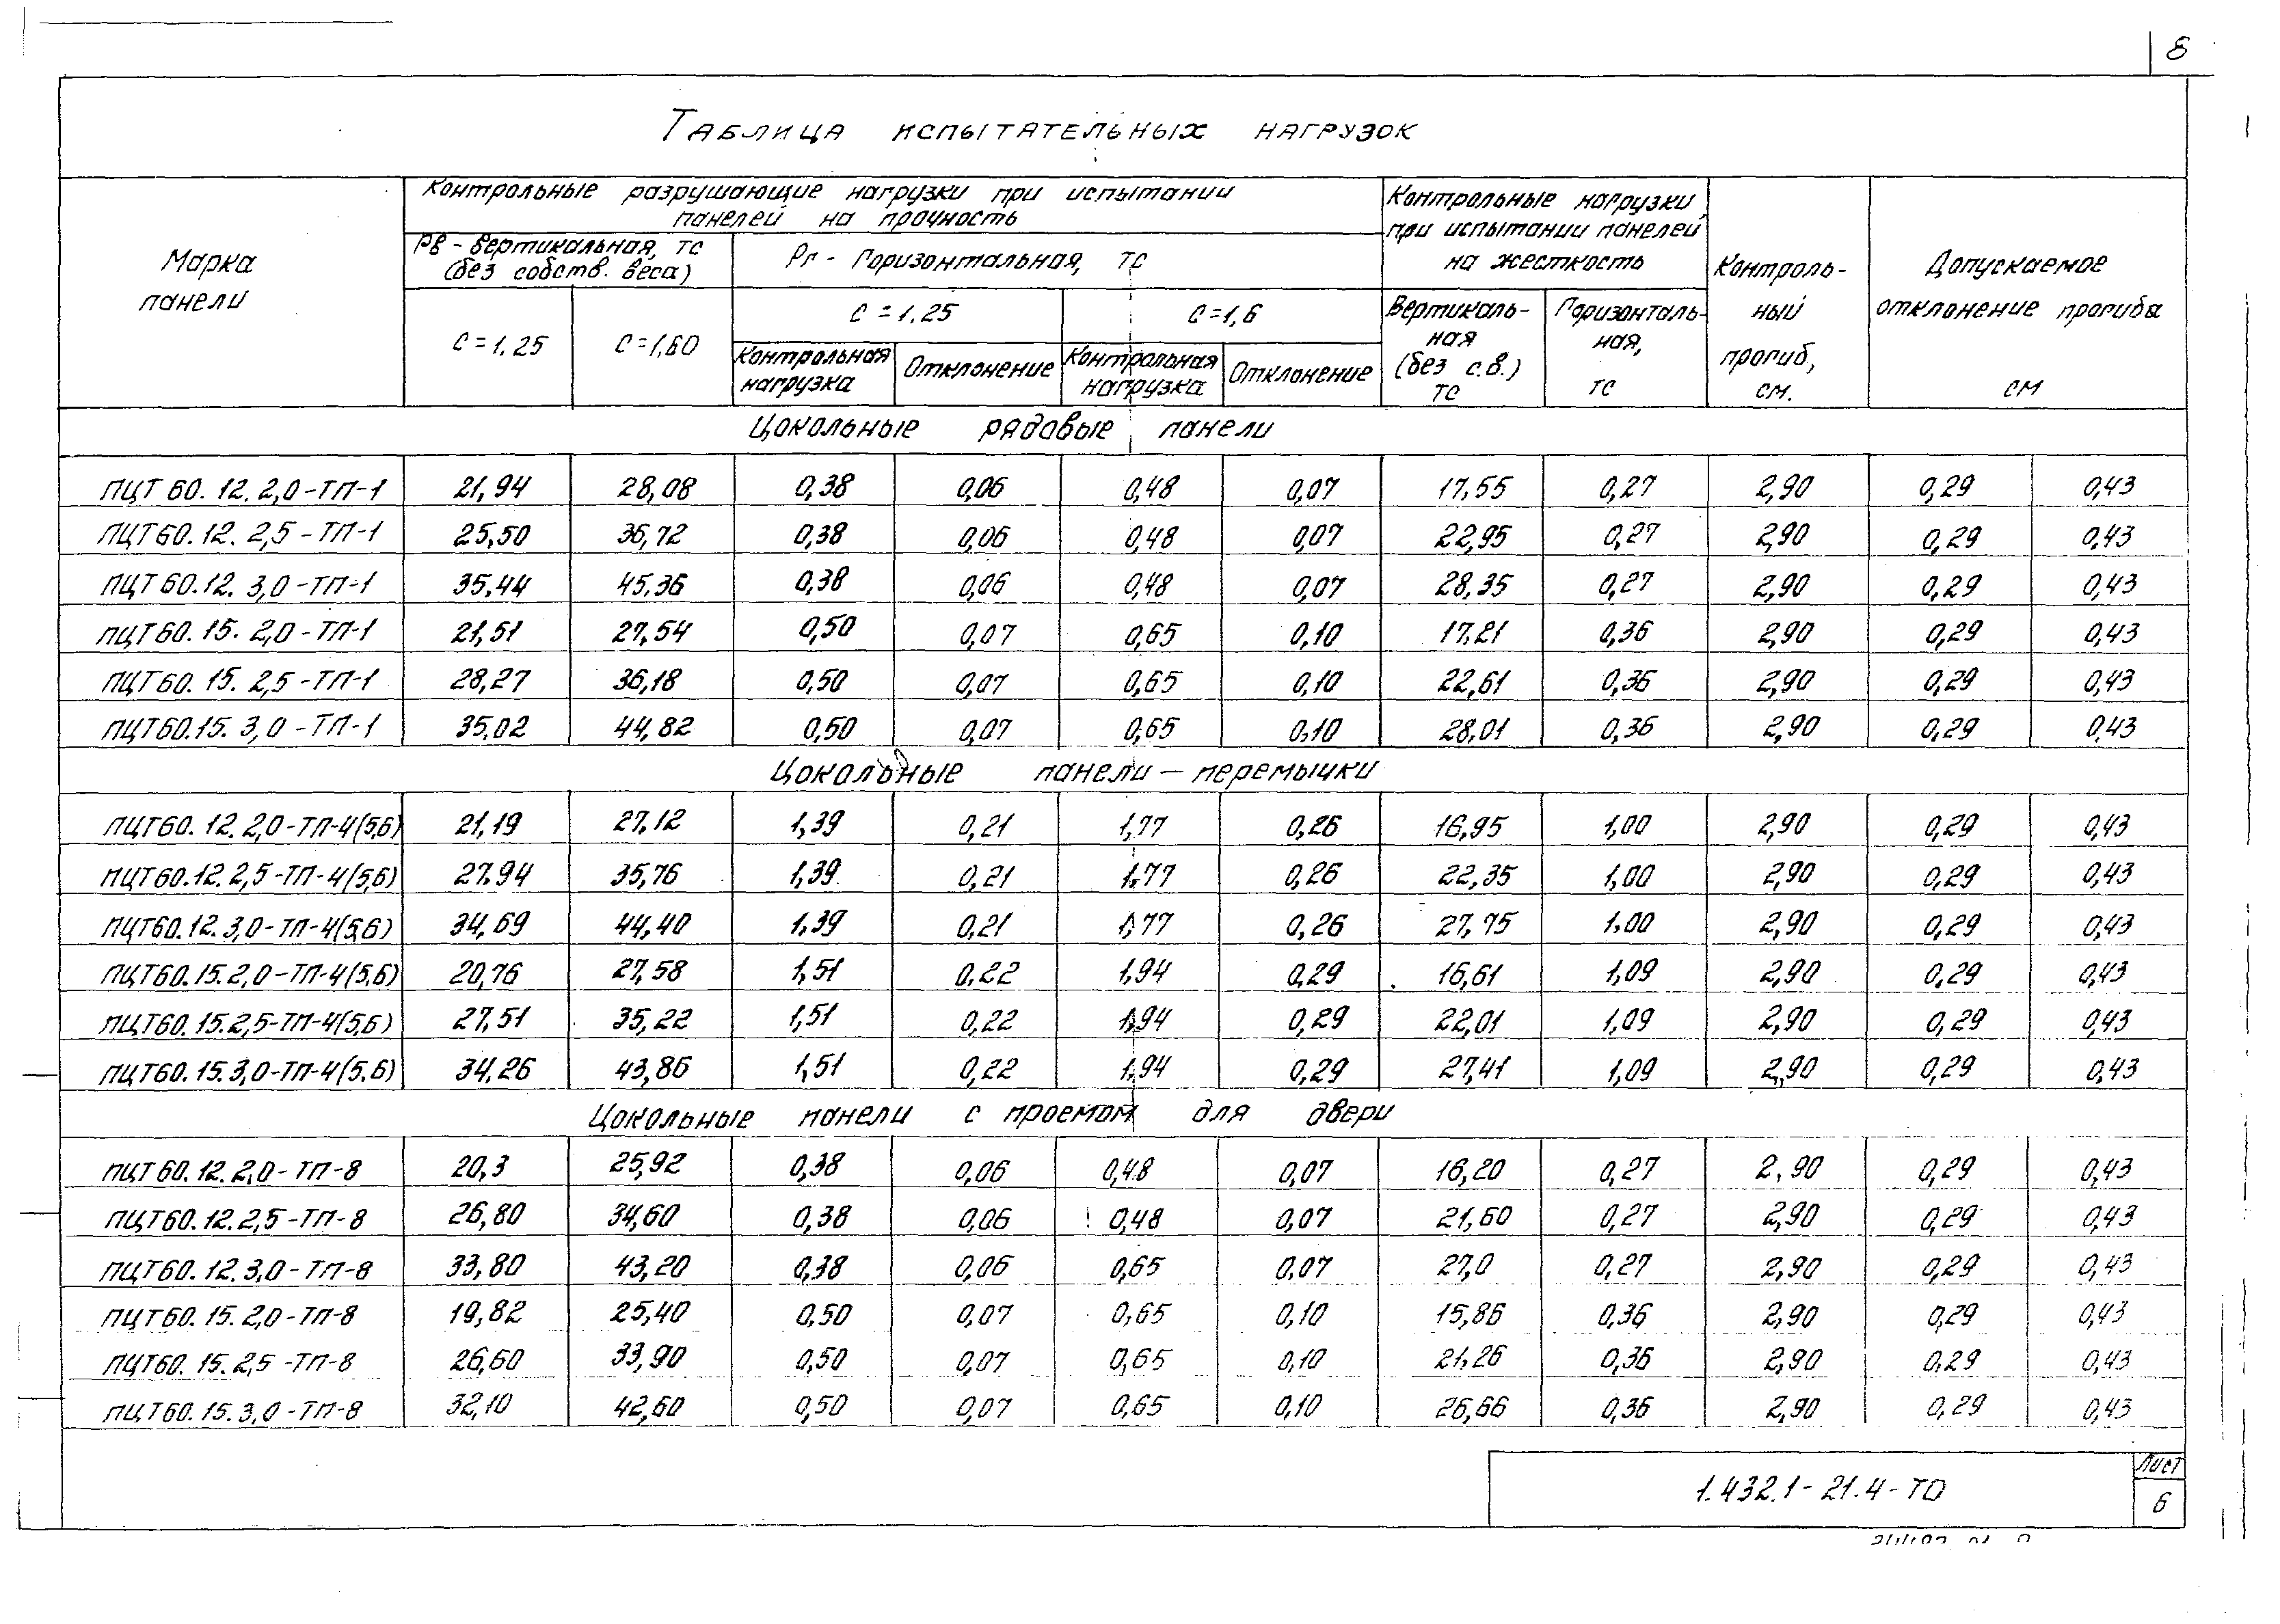 8
Таблица испытательных нагрузок
Марка панели
Контрольные разрушающие нагрузки при испытании
панелей на прочность
Контрольные нагрузки
при испытании панелей
на жесткость
Контроль-
ный
прогиб,
см.
Допускаемое
отклонение прогиба
см
Рв - вертикальная, тс
(без собств. веса)
Рг - Горизонтальная, тс
С = 1.25
С = 1,60
С = 1.25
С = 1,6
Контрольная нагрузка
Отклонение
Контрольная нагрузка
Отклонение
Вертикаль-
ная
(без с.в.)
тс
Горизонталь-
ная,
тс
Цокольные рядовые панели
ПЦТ 60.12.2,0-ТП-1 21,94 28,08 0,38 0,06 0,48 0,07 17,55 0,27 2,90 0,29 0,43
ПЦТ60.12.2,5-ТП-1 25,50 36,72 0,38 0,06 0,48 0,07 22,95 0,27 2,90 0,29 0,43
ПЦТ60.12.3,0-ТП-1 35,44 45,36 0,38 0,06 0,48 0,07 28,35 0,27 2,90 0,29 0,43
ПЦТ60.15.2,0-ТП-1 21,51 27,54 0,50 0,07 0,65 0,10 17,21 0,36 2,90 0,29 0,43
ПЦТ60.15.2,5-ТП-1 28,27 36,18 0,50 0,07 0,65 0,10 22,61 0,36 2,90 0,29 0,43
ПЦТ60.15.3,0-ТП-1 35,02 44,82 0,50 0,07 0,65 0,10 28,01 0,36 2,90 0,29 0,43
Цокольные панели - перемычки
ПЦТ60.12.2,0-ТП-4(5,6) 21,19 27,12 1,39 0,21 1,77 0,26 16,95 1,00 2,90 0,29 0,43
ПЦТ60.12.2,5-ТП-4(5,6) 27,94 35,76 1,39 0,21 1,77 0,26 22,35 1,00 2,90 0,29 0,43
ПЦТ60.12.3,0-ТП-4(5,6) 34,69 44,40 1,39 0,21 1,77 0,26 27,75 1,00 2,90 0,29 0,43
ПЦТ60.15.2,0-ТП-4(5,6) 20,76 27,58 1,51 0,22 1,94 0,29 16,61 1,09 2,90 0,29 0,43
ПЦТ60.15.2,5-ТП-4(5,6) 27,51 35,22 1,51 0,22 1,94 0,29 22,01 1,09 2,90 0,29 0,43
ПЦТ60.15.3,0-ТП-4(5,6) 34,26 43,86 1,51 0,22 1,94 0,29 27,41 1,09 2,90 0,29 0,43
Цокольные панели с проемом для двери
ПЦТ60.12.2,0-ТП-8 20,3 25,92 0,38 0,06 0,48 0,07 16,20 0,27 2,90 0,29 0,43
ПЦТ60.12.2,5-ТП-8 26,80 34,60 0,38 0,06 0,48 0,07 21,60 0,27 2,90 0,29 0,43
ПЦТ60.12.3,0-ТП-8 33,80 43,20 0,38 0,06 0,65 0,07 27,0 0,27 2,90 0,29 0,43
ПЦТ60.15.2,0-ТП-8 19,82 25,40 0,50 0,07 0,65 0,10 15,86 0,36 2,90 0,29 0,43
ПЦТ60.15.2,5-ТП-8 26,60 33,90 0,50 0,07 0,65 0,10 21,26 0,36 2,90 0,29 0,43
ПЦТ60.15.3,0-ТП-8 32,10 42,60 0,50 0,07 0,65 0,10 26,66 0,36 2,90 0,29 0,43
1.432.1-21.4-ТО
Лист
6